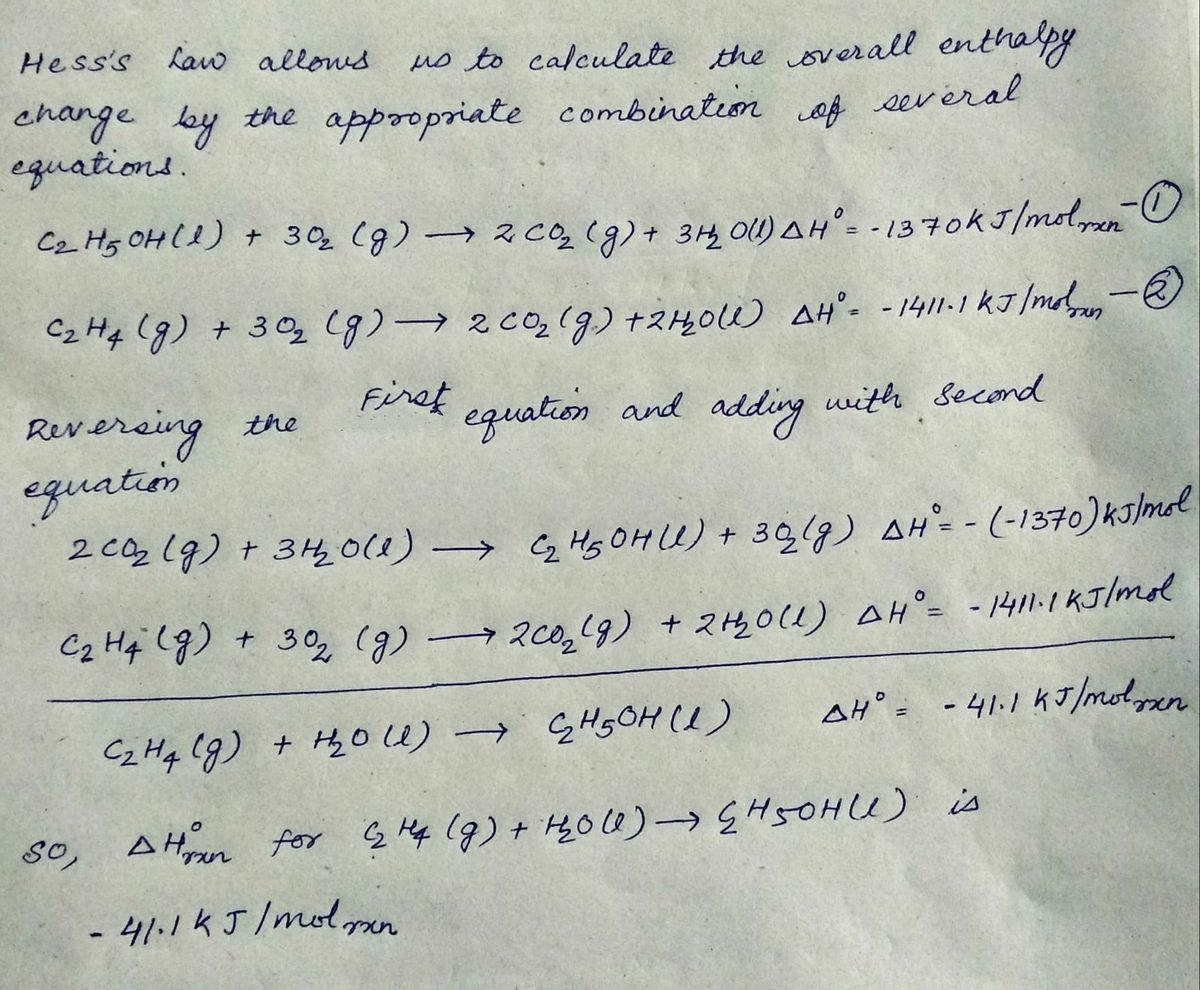 Hess's Law allows us to calculate the overall enthalpy
change by the appropriate combination of several
equations.
C₂H₅OH(l) + 3O₂ (g) → 2CO₂ (g) + 3H₂O(l) ΔH° = -1370kJ/mol rxn -①
C₂H₄ (g) + 3O₂ (g) → 2CO₂ (g) + 2H₂O(l) ΔH° = -1411.1 kJ/mol rxn -②
Reversing the First equation and adding with Second
equation
2CO₂ (g) + 3H₂O(l) → C₂H₅OH(l) + 3O₂(g) ΔH° = -(-1370)kJ/mol
C₂H₄ (g) + 3O₂ (g) → 2CO₂(g) + 2H₂O(l) ΔH° = -1411.1 kJ/mol
C₂H₄ (g) + H₂O (l) → C₂H₅OH (l) ΔH° = -41.1 kJ/mol rxn
SO, ΔH°rxn for C₂H₄ (g) + H₂O(l) → C₂H5OH(l) is
-41.1 kJ/mol rxn